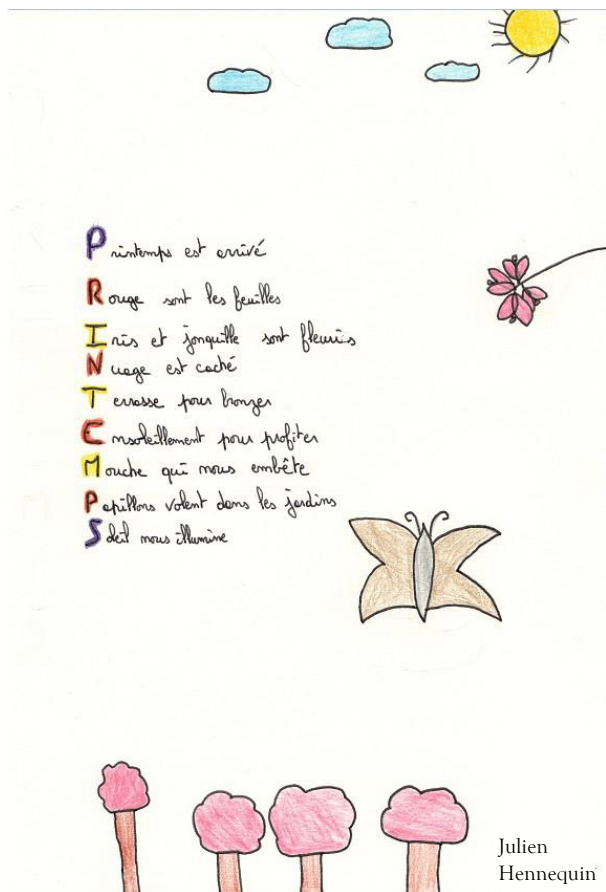 Printemps est arrivé
Rouge sont les feuilles
Iris et jonquille sont fleuris
Nuage est caché
Terrasse pour bronzer
Ensoleillement pour profiter
Mouche qui nous embête
Papillons volent dans les jardins
Soleil nous illumine
Julien
Hennequin